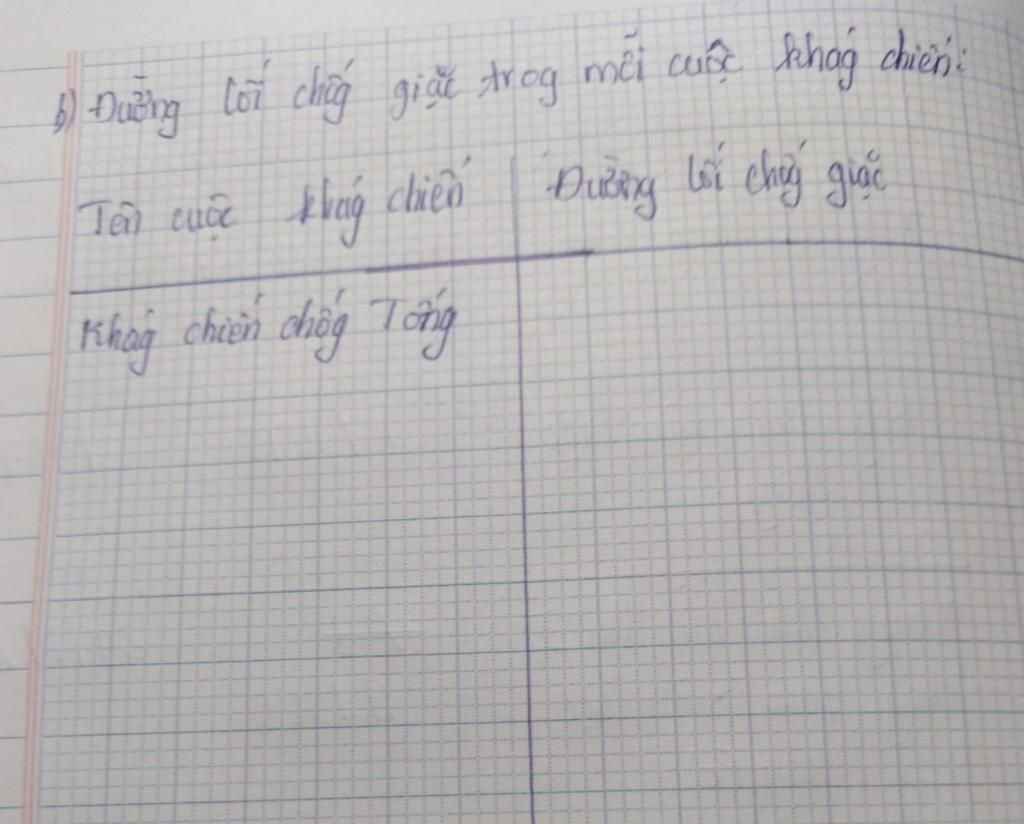 b) Đường lối chốg giặc trog mỗi cuộc khág chiến:
Tên cuộc khág chiến Đường lối chốg giặc
Khág chiến chốg Tốg